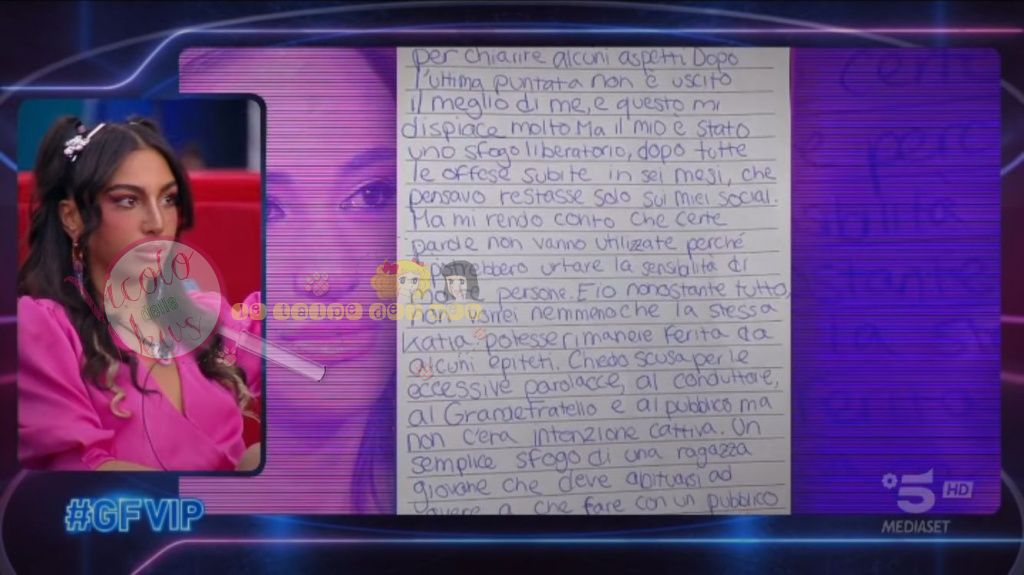 per chiarire alcuni aspetti. Dopo
l'ultima puntata non è uscito
il meglio di me, e questo mi
dispiace molto. Ma il mio è stato
uno sfogo liberatorio, dopo tutte
le offese subite in sei mesi, che
pensavo restasse solo sui miei social.
Ma mi rendo conto che certe
parole non vanno utilizzate perché
potrebbero urtare la sensibilità di
persone. E io nonostante tutto,
non vorrei nemmeno che la stessa
Katia, potesse rimanere ferita da
alcuni epiteti. Chiedo scusa per le
eccessive parolacce, al conduttore,
al Grande Fratello e al pubblico ma
non c'era intenzione cattiva. Un
semplice sfogo di una ragazza
giovane che deve abituarsi ad
avere a che fare con un pubblico
Vicolo
delle
News
le talpe del
#GFVIP
5 HD
MEDIASET